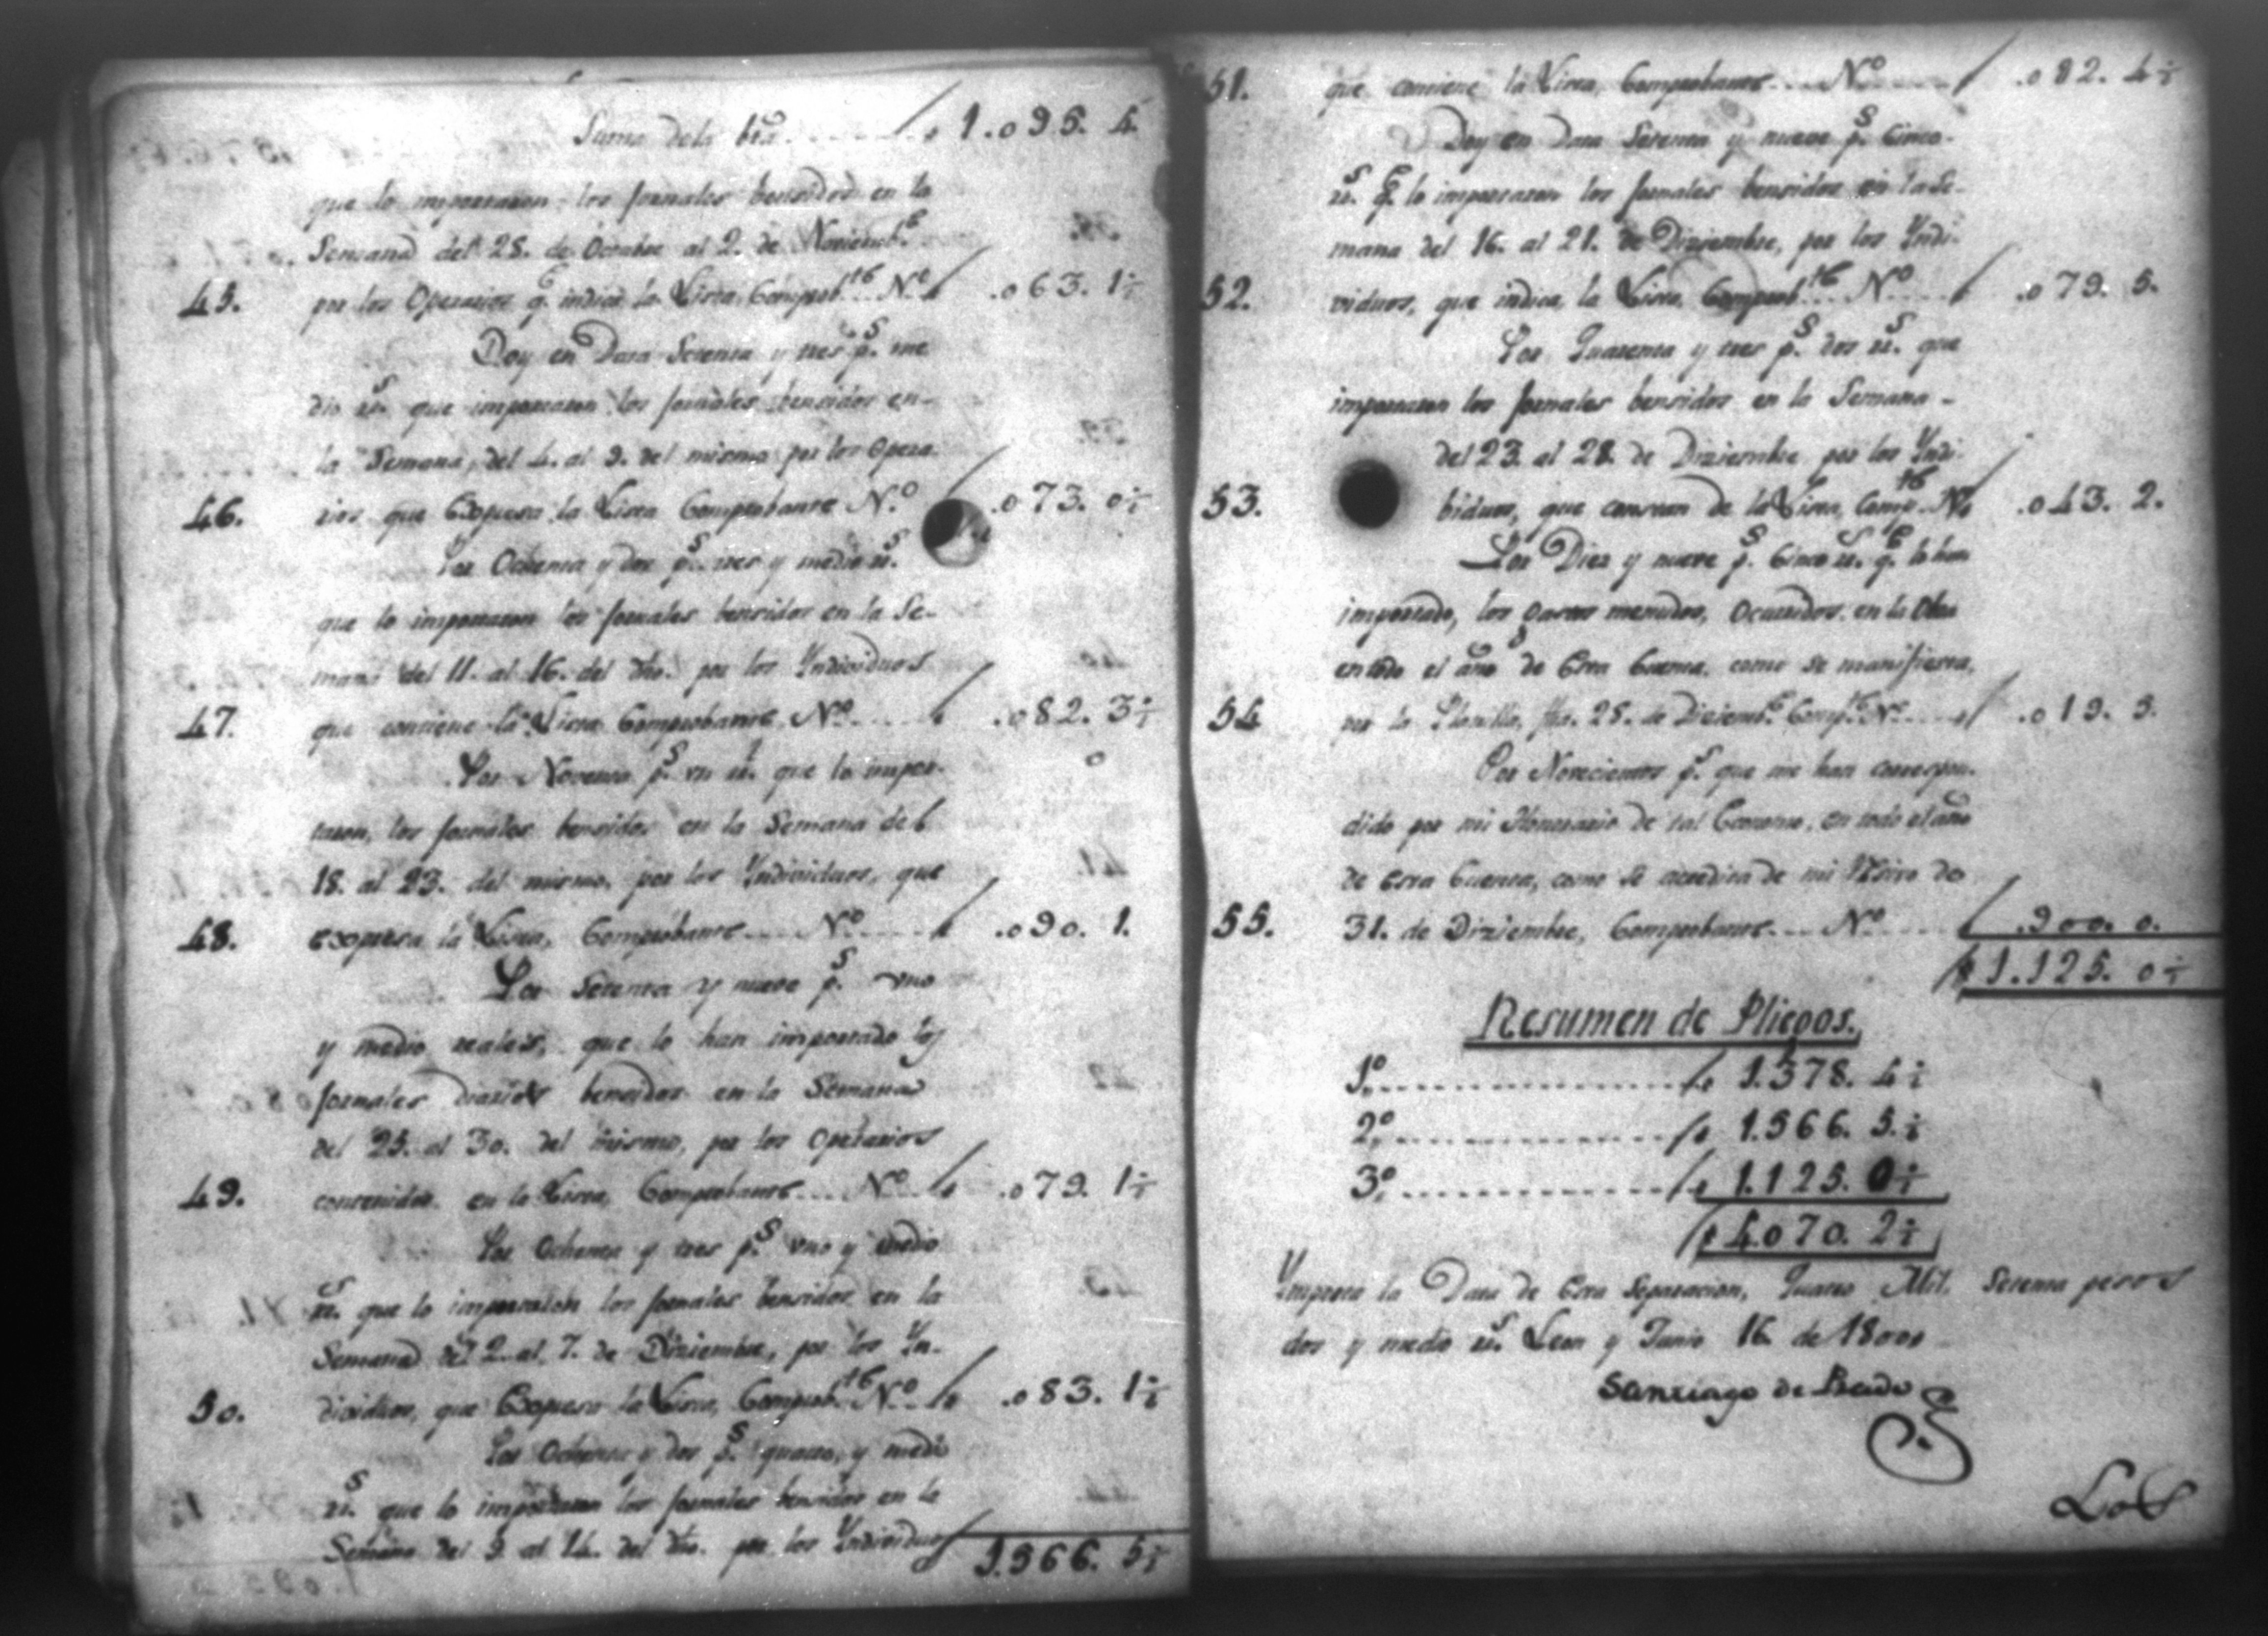 Suma dela bta. 1.095. 4.
que lo importaron los jornales bensidos en la
Semana del 28. de Octubre al 2. de Noviemb.e
45. por los Operarios q.e indica la Lista, Comprob.te N.o .063. 1½
Doy en Data Setenta y tres p.s me
dio rr.s que importaron los jornales bensidos en
la Semana, del 4. al 9. del mismo por los Opera
46. rios que Expresa la Lista Comprobante N.o .073. 0½
Por Ochenta y dos p.s tres y medio rr.s
que lo importaron los jornales bensidos en la Se-
mana del 11. al 16. del dho. por los Yndividuos
47. que contiene la Lista Comprobante N.o .082. 3½
Por Noventa p.s vn rr.l que lo impor-
taron, los jornales bensidos en la Semana del
18. al 23. del mismo, por los Yndividuos, que
48. expresa la Lista, Comprobante N.o .090. 1.
Por Setenta y nueve p.s vno
y medio reales, que lo han importado los
jornales diarios bensidos en la Semana
del 25. al 30. del mismo, por los Operarios
49. contenidos en la Lista, Comprobante N.o .079. 1½
Por Ochenta y tres p.s vno y medio
rr.s que lo importaron los jornales bensidos en la
Semana del 2. al 7. de Diziembre, por los Yn-
50. dividuos, que Expresa la Lista, Comprob.te N.o .083. 1½
Por Ochenta y dos p.s quatro, y medio
rr.s que lo importaron los jornales bensidos en la
Semana del 9. al 14. del dho. por los Yndividuos
1.566. 5½
51. que contiene la Lista, Comprobante N.o .082. 4½
Doy en Data Setenta y nueve p.s Cinco
rr.s q.e lo importaron los jornales bensidos en la Se-
mana del 16. al 21. de Diziembre, por los Yndi-
52. viduos, que indica, la Lista, Comprob.te N.o .079. 5.
Por Quarenta y tres p.s dos rr.s que
importaron los jornales bensidos en la Semana
del 23. al 28. de Diziembre por los Yndi-
53. biduos, que constan de la Lista, Comp.te N.o .043. 2.
Por Diez y nueve p.s Cinco rr.s q.e lo han
importado, los gastos menudos, Ocurridos en la Obra
en todo el año de Esta Cuenta, como se manifiesta,
54 por la Planilla, fha. 28. de Diciemb.e Comp.te N.o .019. 5.
Por Novecientos p.s que me han correspon-
dido por mi Honorario de tal Economo, en todo el año
de Esta Cuenta, como se acredita de mi Resivo de
55. 31. de Diziembre, Comprobante N.o .900. 0.
1.125. 0½
Resumen de Pliegos.
1.o 1.378. 4½
2.o 1.566. 5.½
3.o 1.125. 0½
4.070. 2½
Ymporta la Data de Esta Separacion, Quatro Mil, Setenta pesos
dos y medio rr.s Leon y Junio 16. de 1800
Santiago de Prado
Los